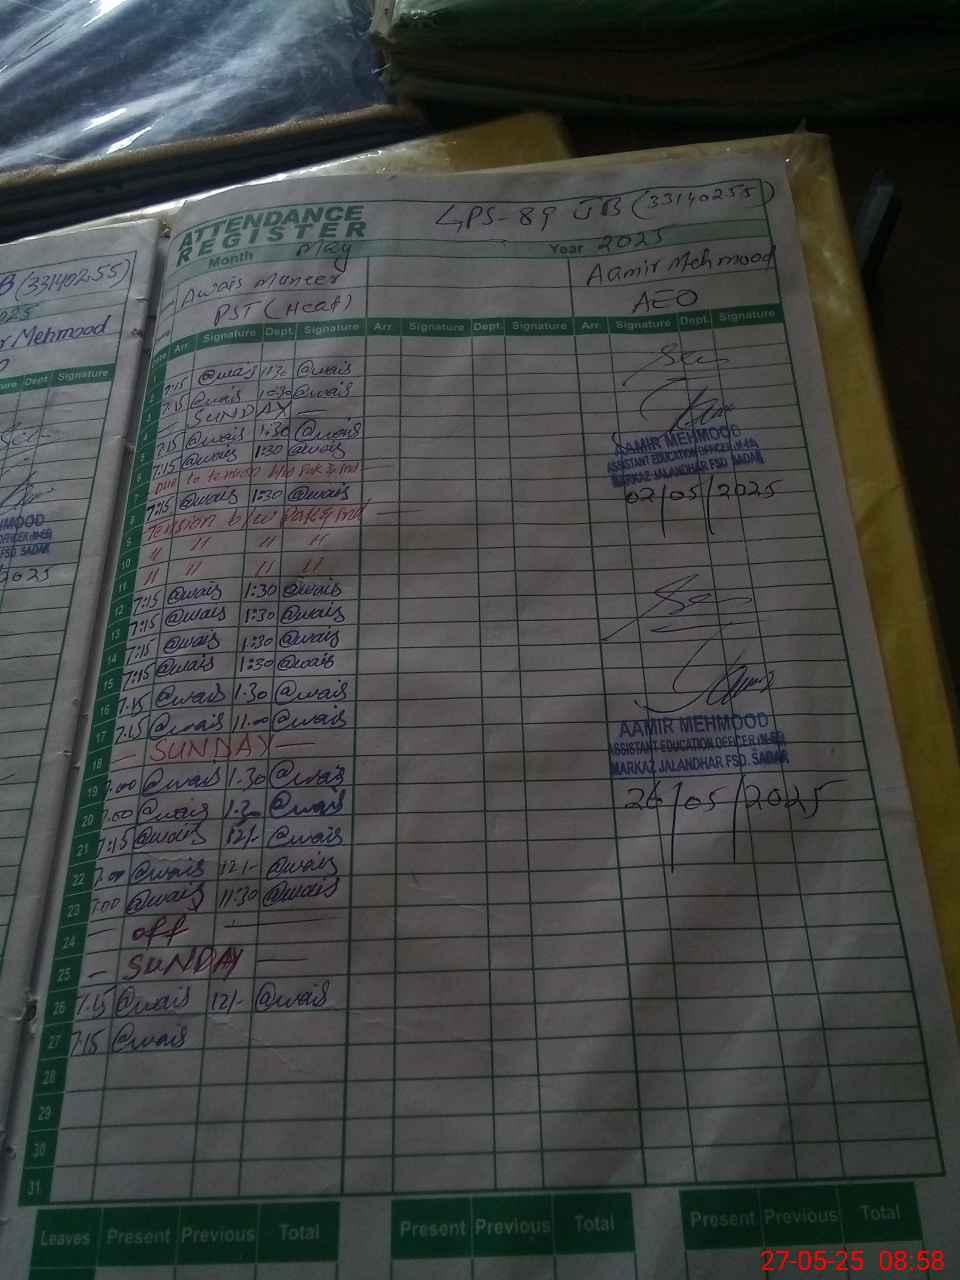 B (33140255)
ATTENDANCE REGISTER
GPS-89 JB (33140255)
Month May Year 2025
Awais Muneer
PST (Head)
Aamir Mehmood
AEO
Date Arr. Signature Dept. Signature Arr. Signature Dept. Signature Arr. Signature Dept. Signature
1
2 7:15 @wais 11:30 @wais
3 7:15 @wais 10:30 @wais
4 — SUNDAY —
5 7:15 @wais 1:30 @wais
6 7:15 @wais 1:30 @wais
7 Due to tension b/w Pak & Ind
8 7:15 @wais 1:30 @wais
9 Tension b/w Pak & Ind
10 11 11 11 11
11 11 11 11 11
12 7:15 @wais 1:30 @wais
13 7:15 @wais 1:30 @wais
14 7:15 @wais 1:30 @wais
15 7:15 @wais 1:30 @wais
16 7.15 @wais 1.30 @wais
17 7.15 @wais 11.00 @wais
18 — SUNDAY —
19 7.00 @wais 1.30 @wais
20 7.00 @wais 1.30 @wais
21 7:15 @wais 12/- @wais
22 7.00 @wais 12/- @wais
23 7:00 @wais 11:30 @wais
24 — off —
25 — SUNDAY —
26 7.15 @wais 12/- @wais
27 7.15 @wais
28
29
30
31
AAMIR MEHMOOD
ASSISTANT EDUCATION OFFICER (M-EE)
MARKAZ JALANDHAR FSD. SADAR
02/05/2025
AAMIR MEHMOOD
ASSISTANT EDUCATION OFFICER (M-EE)
MARKAZ JALANDHAR FSD. SADAR
26/05/2025
Leaves Present Previous Total Present Previous Total Present Previous Total
27-05-25 08:58